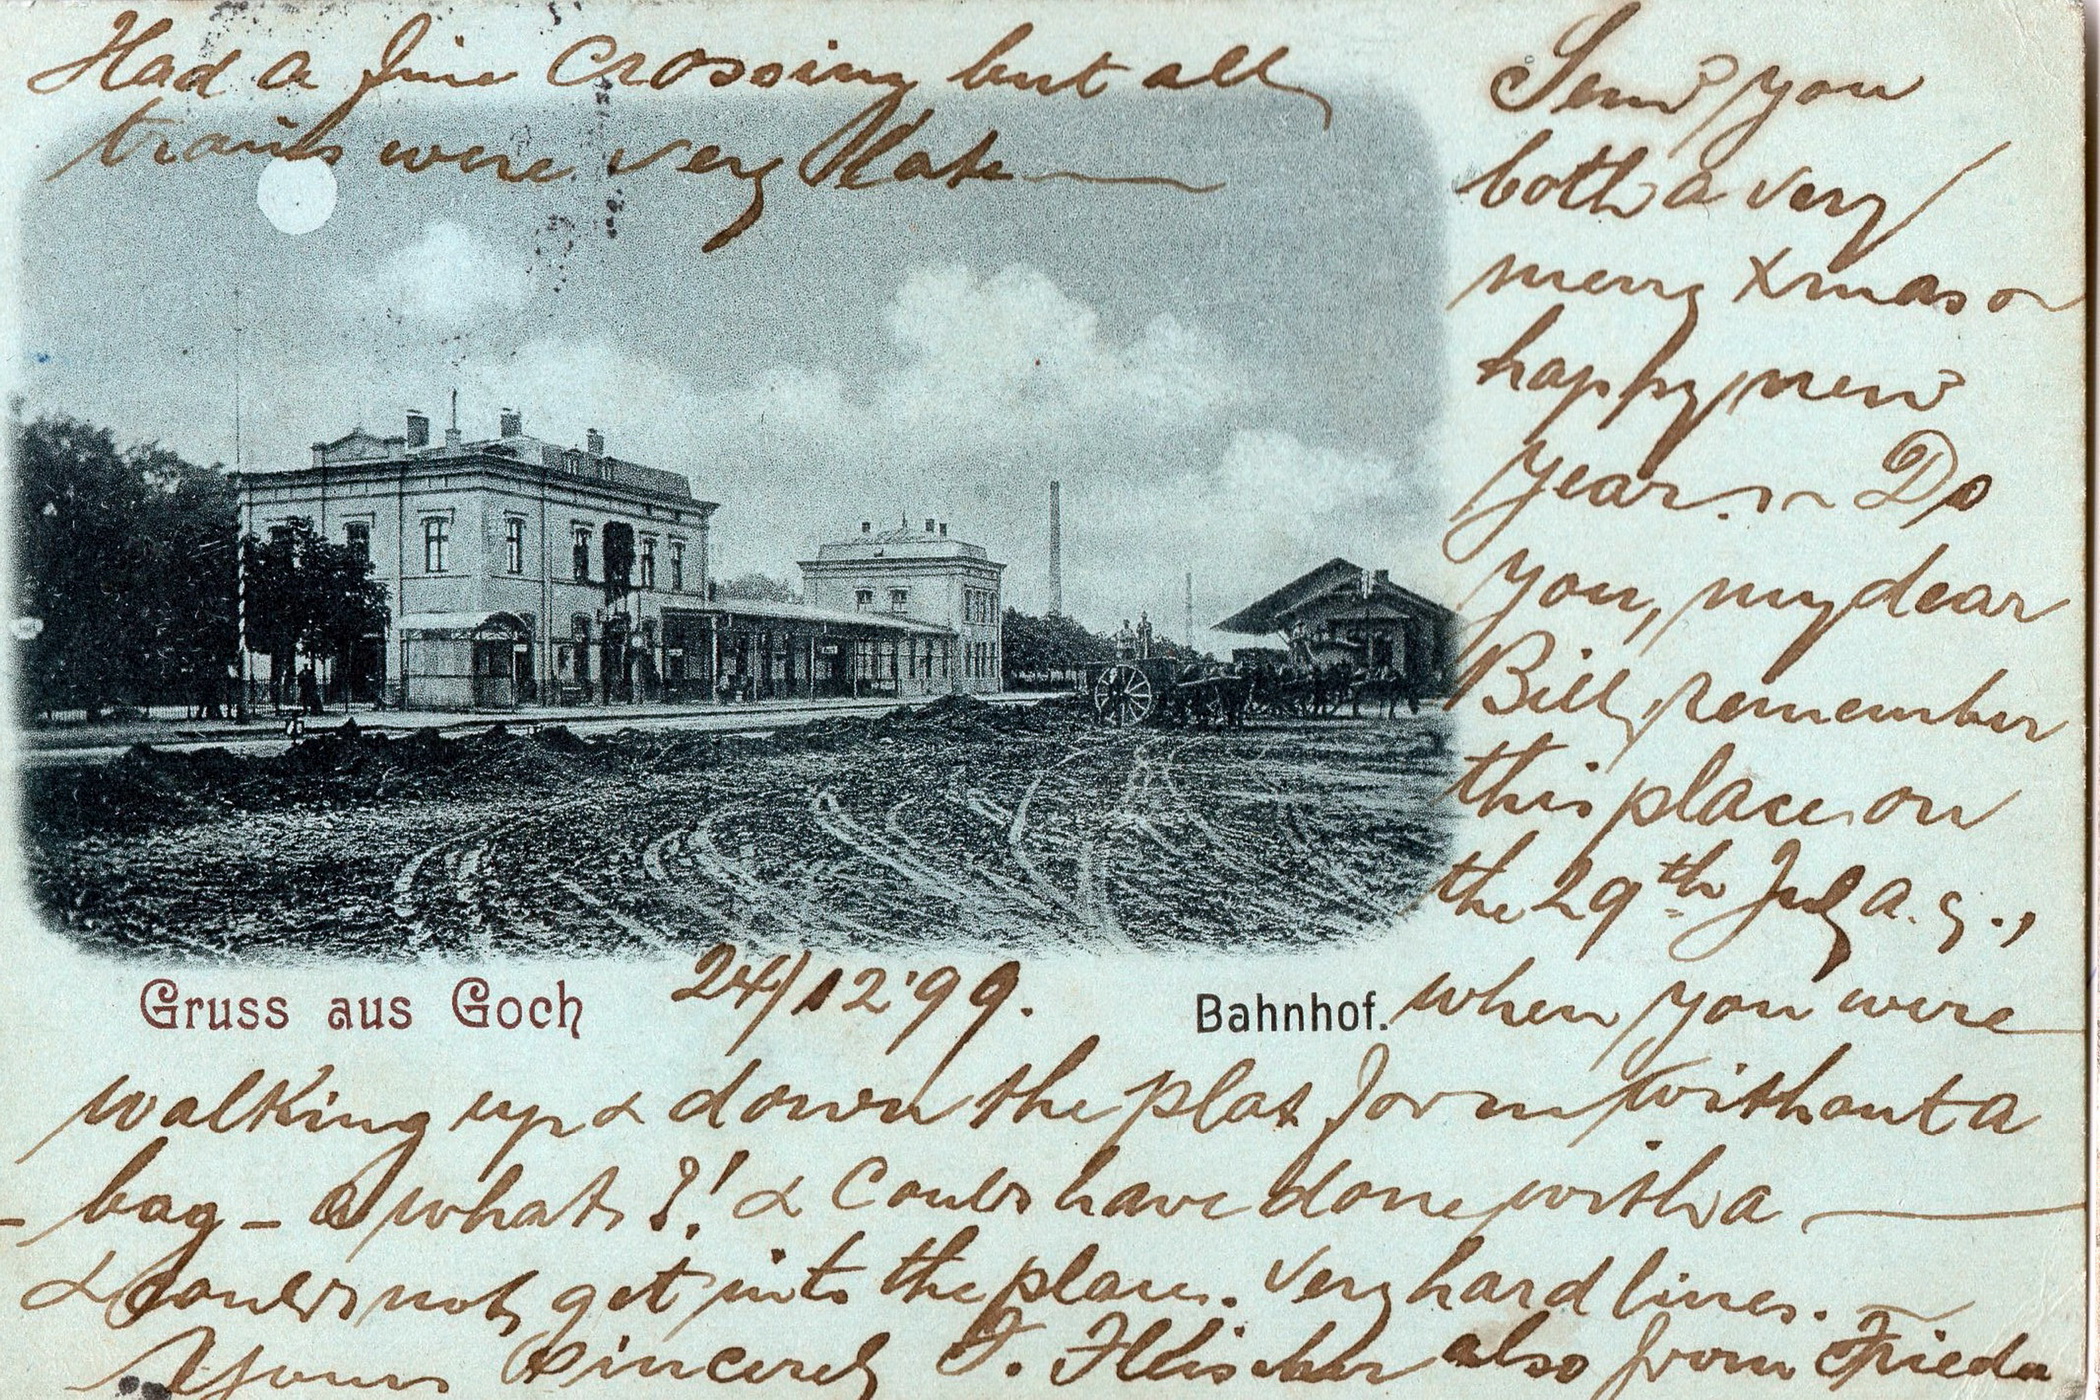 Had a fine crossing but all
trains were very late
Send you
both a very
merry Xmas &
happy new
year. Do
you, my dear
Bill, remember
this place on
the 29th July a. c.,
Gruss aus Goch 24/12'99. Bahnhof. when you were
walking up & down the plat form without a
bag - a what?! & could have done with a
& could not get into the place. Very hard lines.
Yours sincerely F. Fleischer also from Frieda